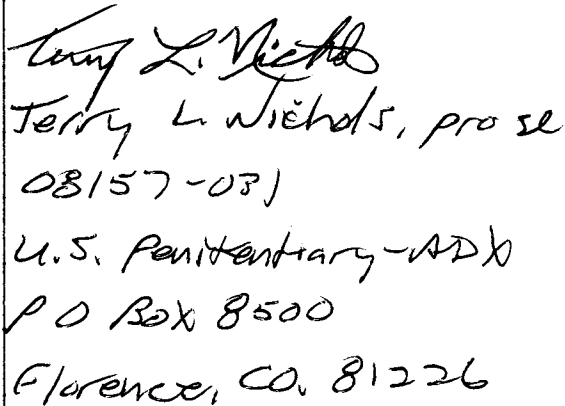 Terry L. Nichols
Terry L. Nichols, pro se
08157-031
U.S. Penitentiary-ADX
P O Box 8500
Florence, CO. 81226